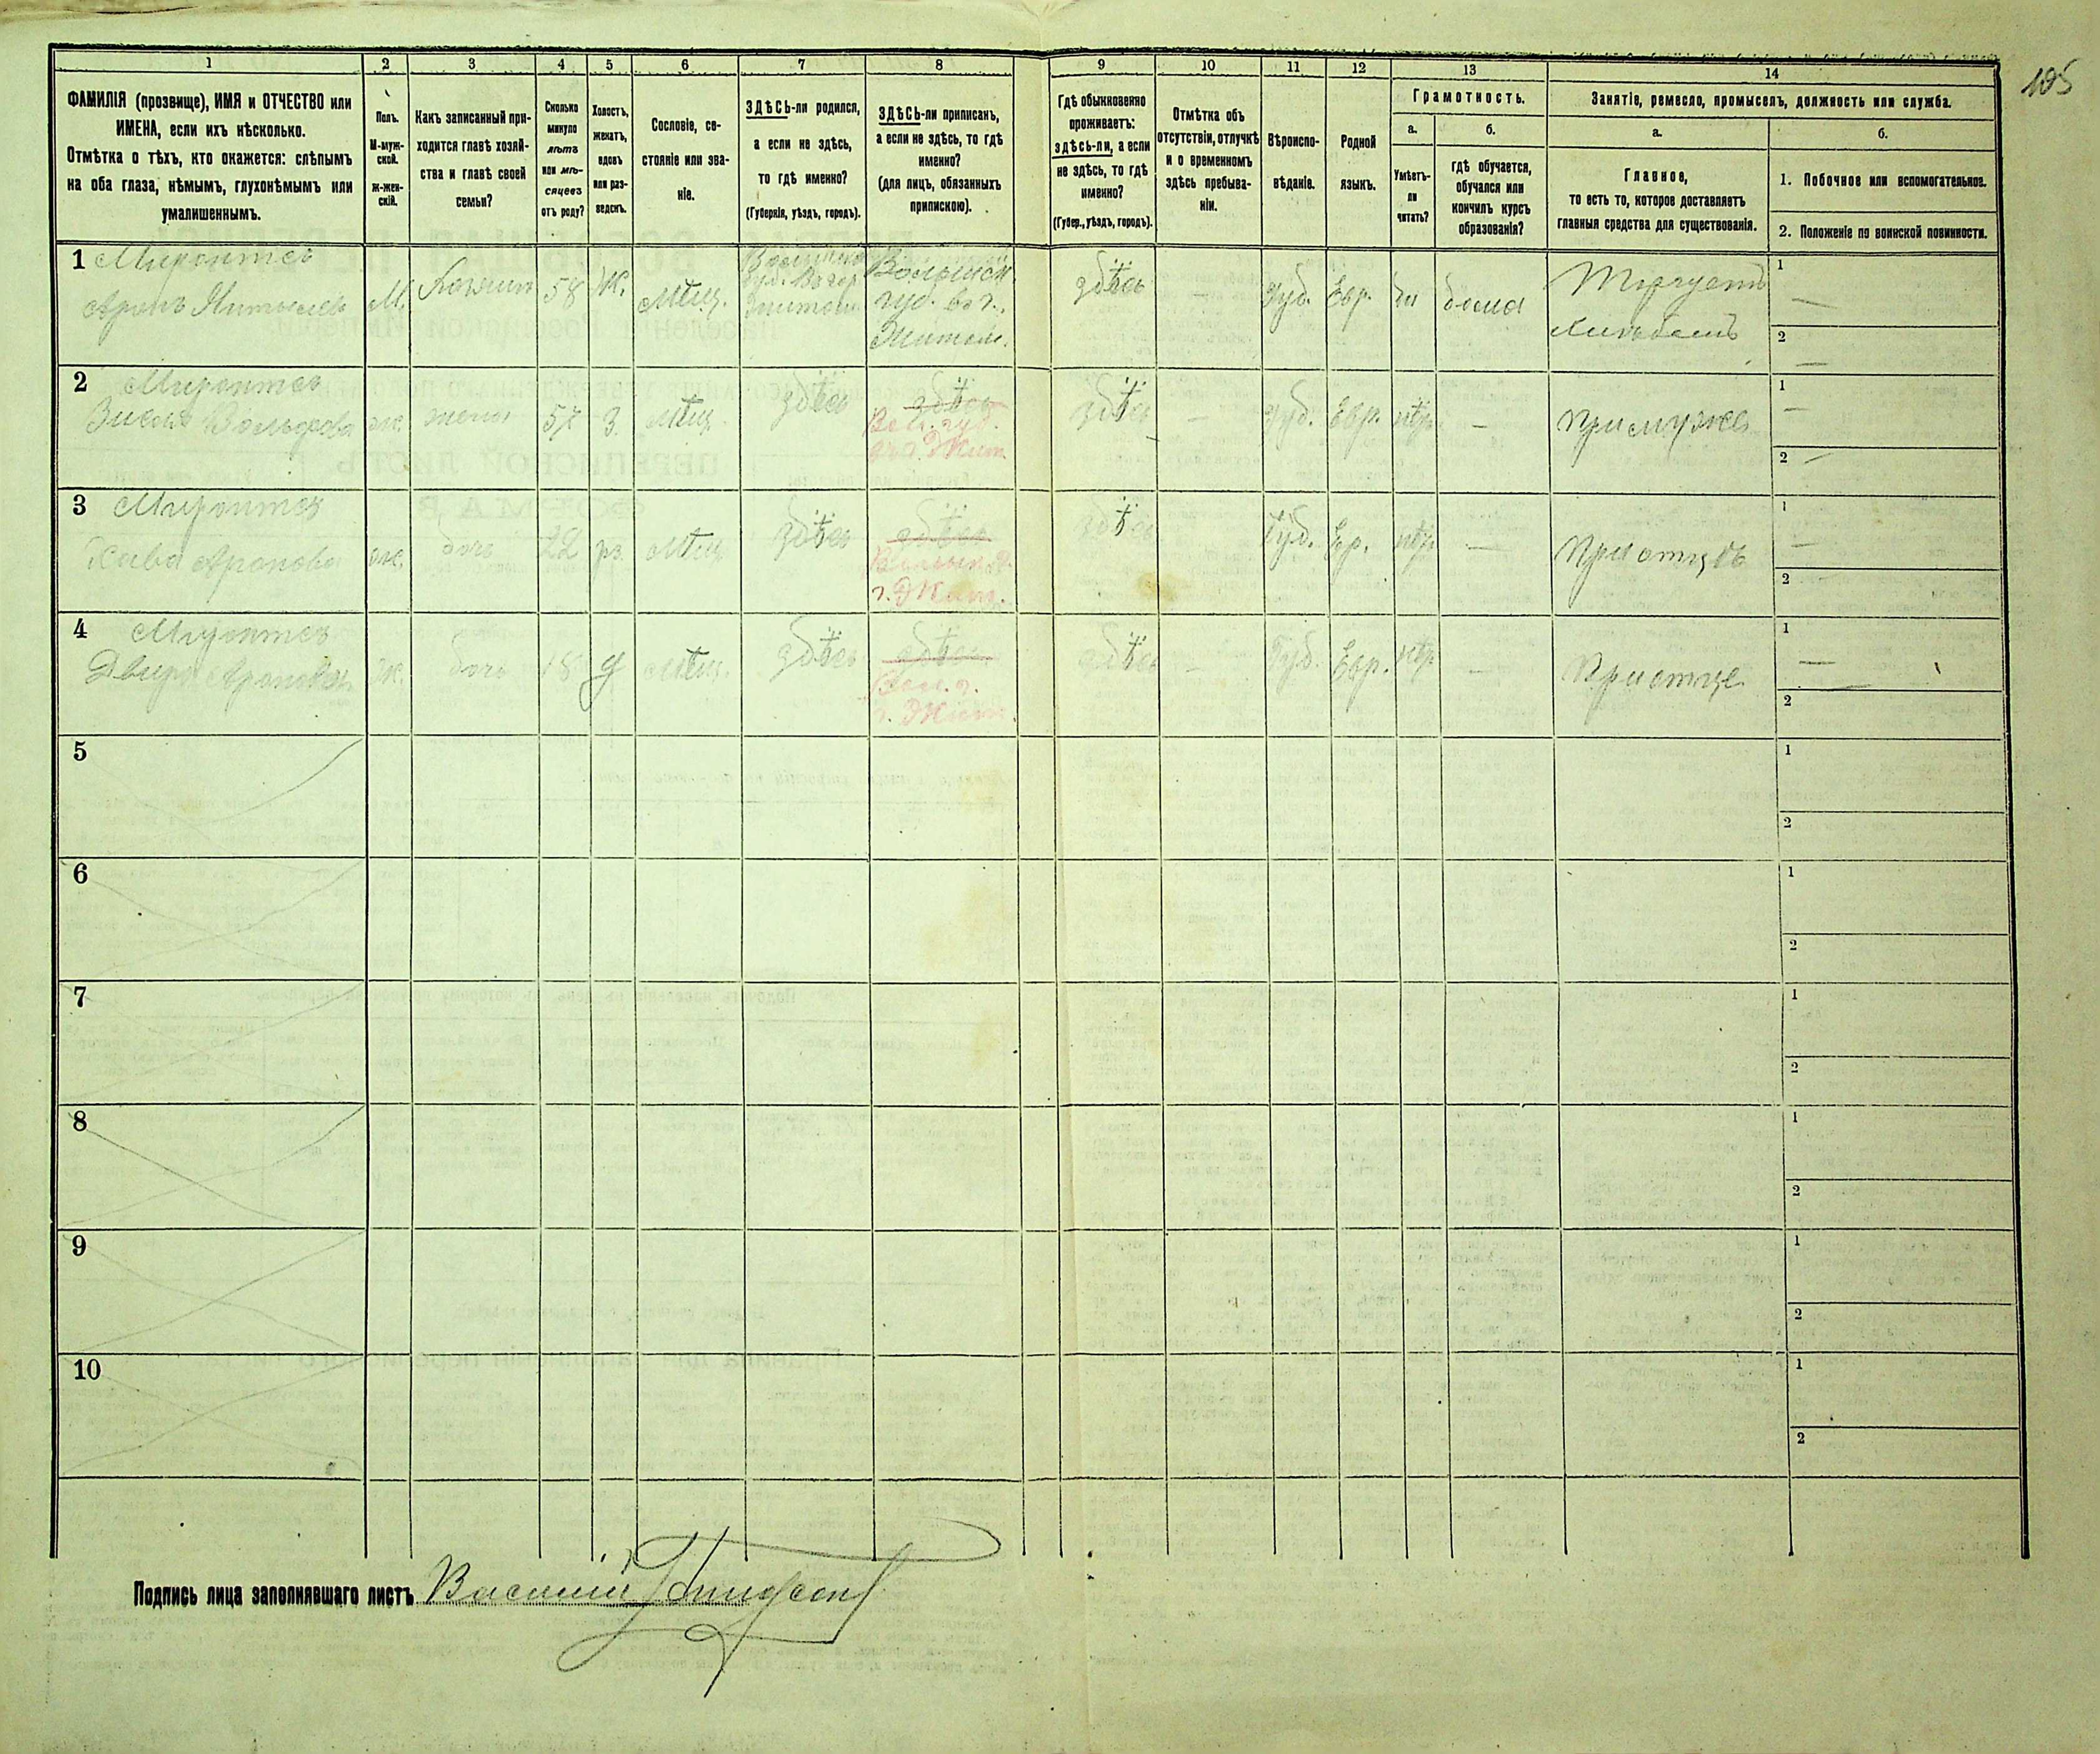 105
1 2 3 4 5 6 7 8 9 10 11 12 13 14
ФАМИЛІЯ (прозвище), ИМЯ и ОТЧЕСТВО или
ИМЕНА, если ихъ нѣсколько.
Отмѣтка о тѣхъ, кто окажется: слѣпымъ
на оба глаза, нѣмымъ, глухонѣмымъ или
умалишеннымъ.
Полъ.
М-муж-
ской.
Ж-жен-
скій.
Какъ записанный при-
ходится главѣ хозяй-
ства и главѣ своей
семьи?
Сколько
минуло
лѣтъ
или мѣ-
сяцевъ
отъ роду?
Холостъ,
женатъ,
вдовъ
или раз-
веденъ.
Сословіе, со-
стояніе или зва-
ніе.
ЗДѢСЬ-ли родился,
а если не здѣсь,
то гдѣ именно?
(Губернія, уѣздъ, городъ).
ЗДѢСЬ-ли приписанъ,
а если не здѣсь, то гдѣ
именно?
(для лицъ, обязанныхъ
припискою).
Гдѣ обыкновенно
проживаетъ:
здѣсь-ли, а если
не здѣсь, то гдѣ
именно?
(Губер., уѣздъ, городъ).
Отмѣтка объ
отсутствіи, отлучкѣ
и о временномъ
здѣсь пребыва-
ніи.
Вѣроиспо-
вѣданіе.
Родной
языкъ.
Грамотность.
а.
Умѣетъ-
ли
читать?
б.
гдѣ обучается,
обучался или
кончилъ курсъ
образованія?
Занятіе, ремесло, промыселъ, должность или служба.
а.
Главное,
то есть то, которое доставляетъ
главныя средства для существованія.
б.
1. Побочное или вспомогательное.
2. Положеніе по воинской повинности.
1
Аронъ
М.
Хозяин
58
Ж.
Мѣщ.
Волынск.
губ. въ г.
Житом.
здѣсь
—
Іуд.
Евр.
дома
Торгуетъ
1 —
2 —
2
ж.
жена
57
З.
Мѣщ.
здѣсь
здѣсь
Вол. губ.
г. Жит.
здѣсь
—
Іуд.
Евр.
—
При мужѣ
1 —
2 —
3
Хава Аронова
ж.
дочь
22
Мѣщ.
здѣсь
здѣсь
г. Жит.
здѣсь
Іуд.
Евр.
—
При отцѣ
1 —
2
4
Двыра Аронова
Ж.
дочь
18
Мѣщ.
здѣсь
здѣсь
Вол. г.
г. Жит.
здѣсь
—
Іуд.
Евр.
—
При отце
1 —
2
5
1
2
6
1
2
7
1
2
8
1
2
9
1
2
10
1
2
Подпись лица заполнявшаго листъ Василій